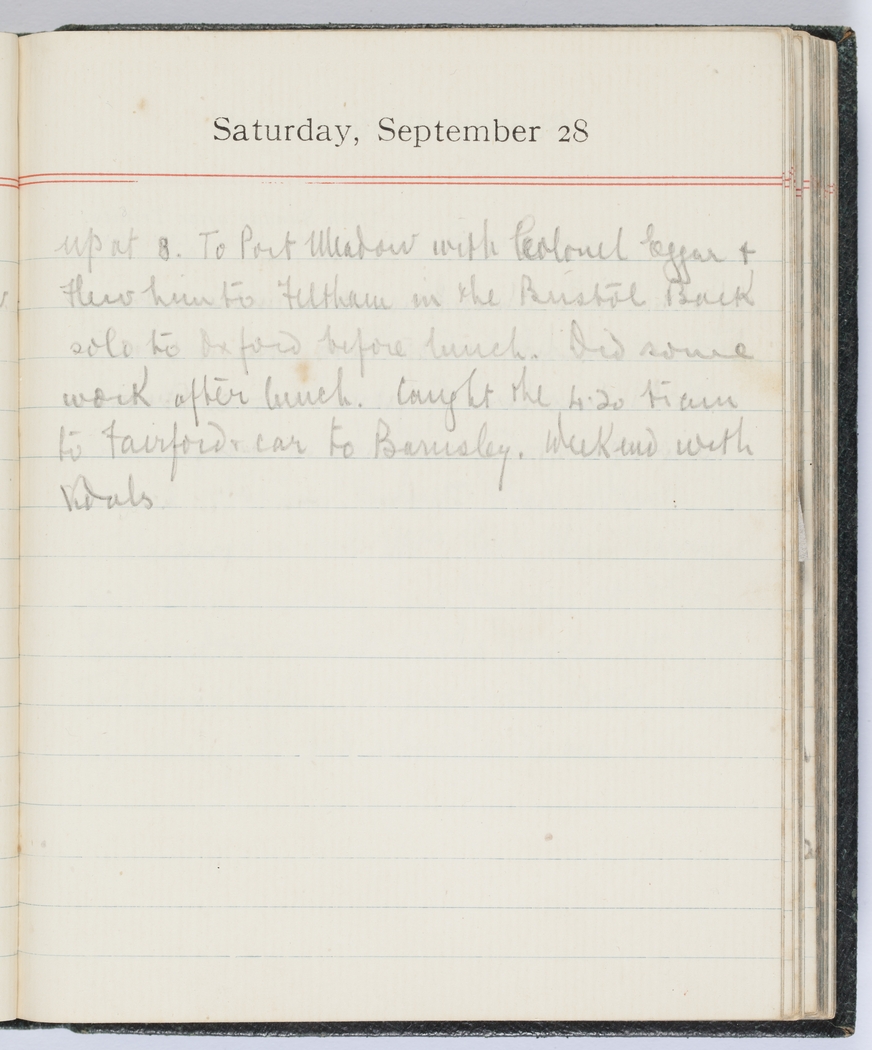 Saturday, September 28
up at 8. To Port Meadow with Colonel Eggar +
flew him to Feltham in the Bristol Back
solo to Oxford before lunch. Did some
work after lunch. Caught the 4.20 train
to Fairford + car to Barnsley. Weekend with